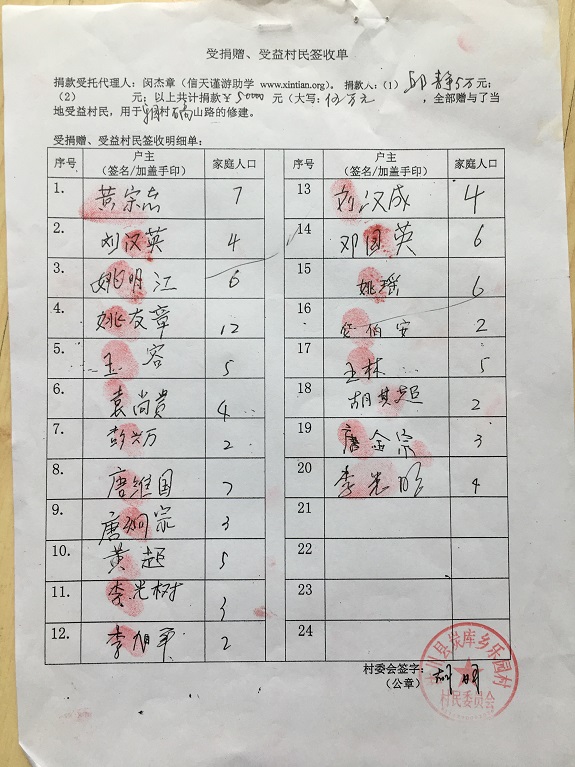 受捐赠、受益村民签收单
捐款受托代理人：闵杰章（信天谨游助学 www.xintian.org）。 捐款人：（1） 邱静5万元；
（2） 元；以上共计捐款￥50000 元（大写：伍万元 ，全部赠与了当
地受益村民，用于 村 山路的修建。
受捐赠、受益村民签收明细单：
序号 户主（签名/加盖手印） 家庭人口 序号 户主（签名/加盖手印） 家庭人口
1. 黄宗志 7 13 刘汉成 4
2. 刘汉英 4 14 邓国英 6
3. 姚明江 6 15 姚瑶 6
4. 姚友章 12 16 伯安 2
5. 王容 5 17 王林 5
6. 袁尚贵 4 18 胡其超 2
7. 彭兴万 2 19 唐金宗 3
8. 唐维国 7 20 李光明 4
9. 唐 宗 3 21
10. 黄超 5 22
11. 李光树 3 23
12. 李旭军 2 24
村委会签字：
（公章）
川县炭库乡乐园村
村民委员会